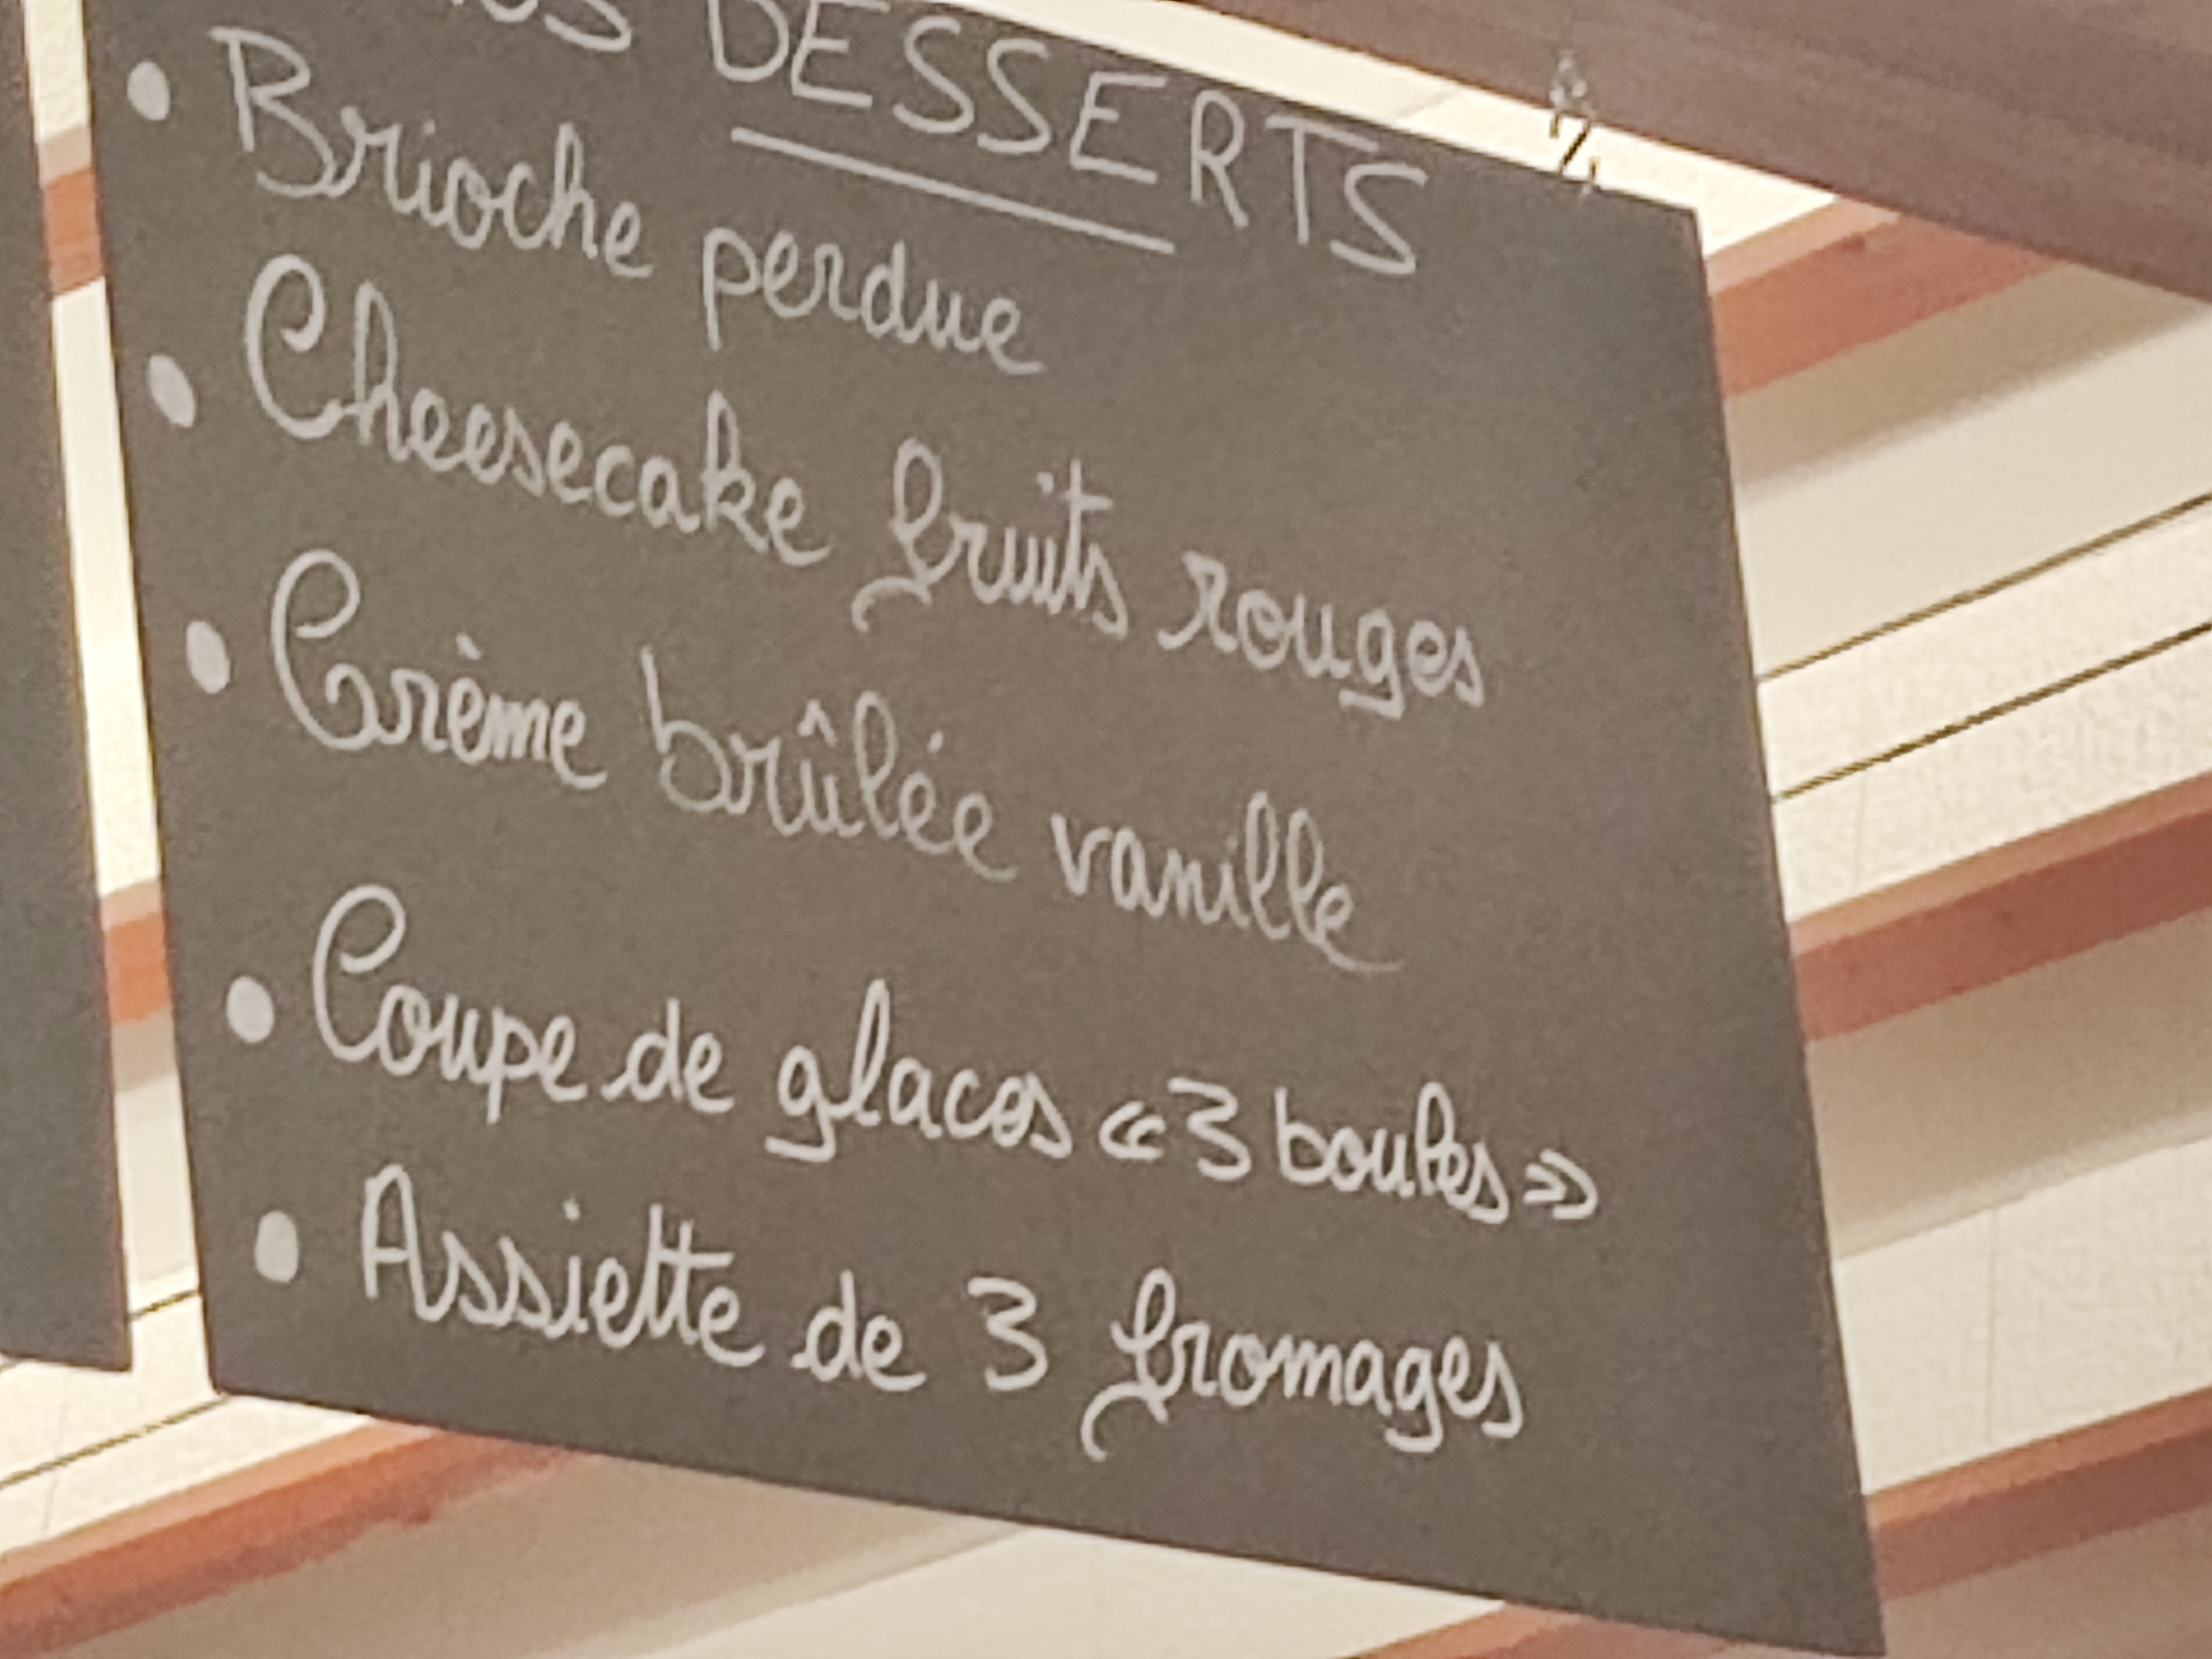 DESSERTS
• Brioche perdue
• Cheesecake fruits rouges
• Crème brûlée vanille
• Coupe de glaces «3 boules»
• Assiette de 3 fromages